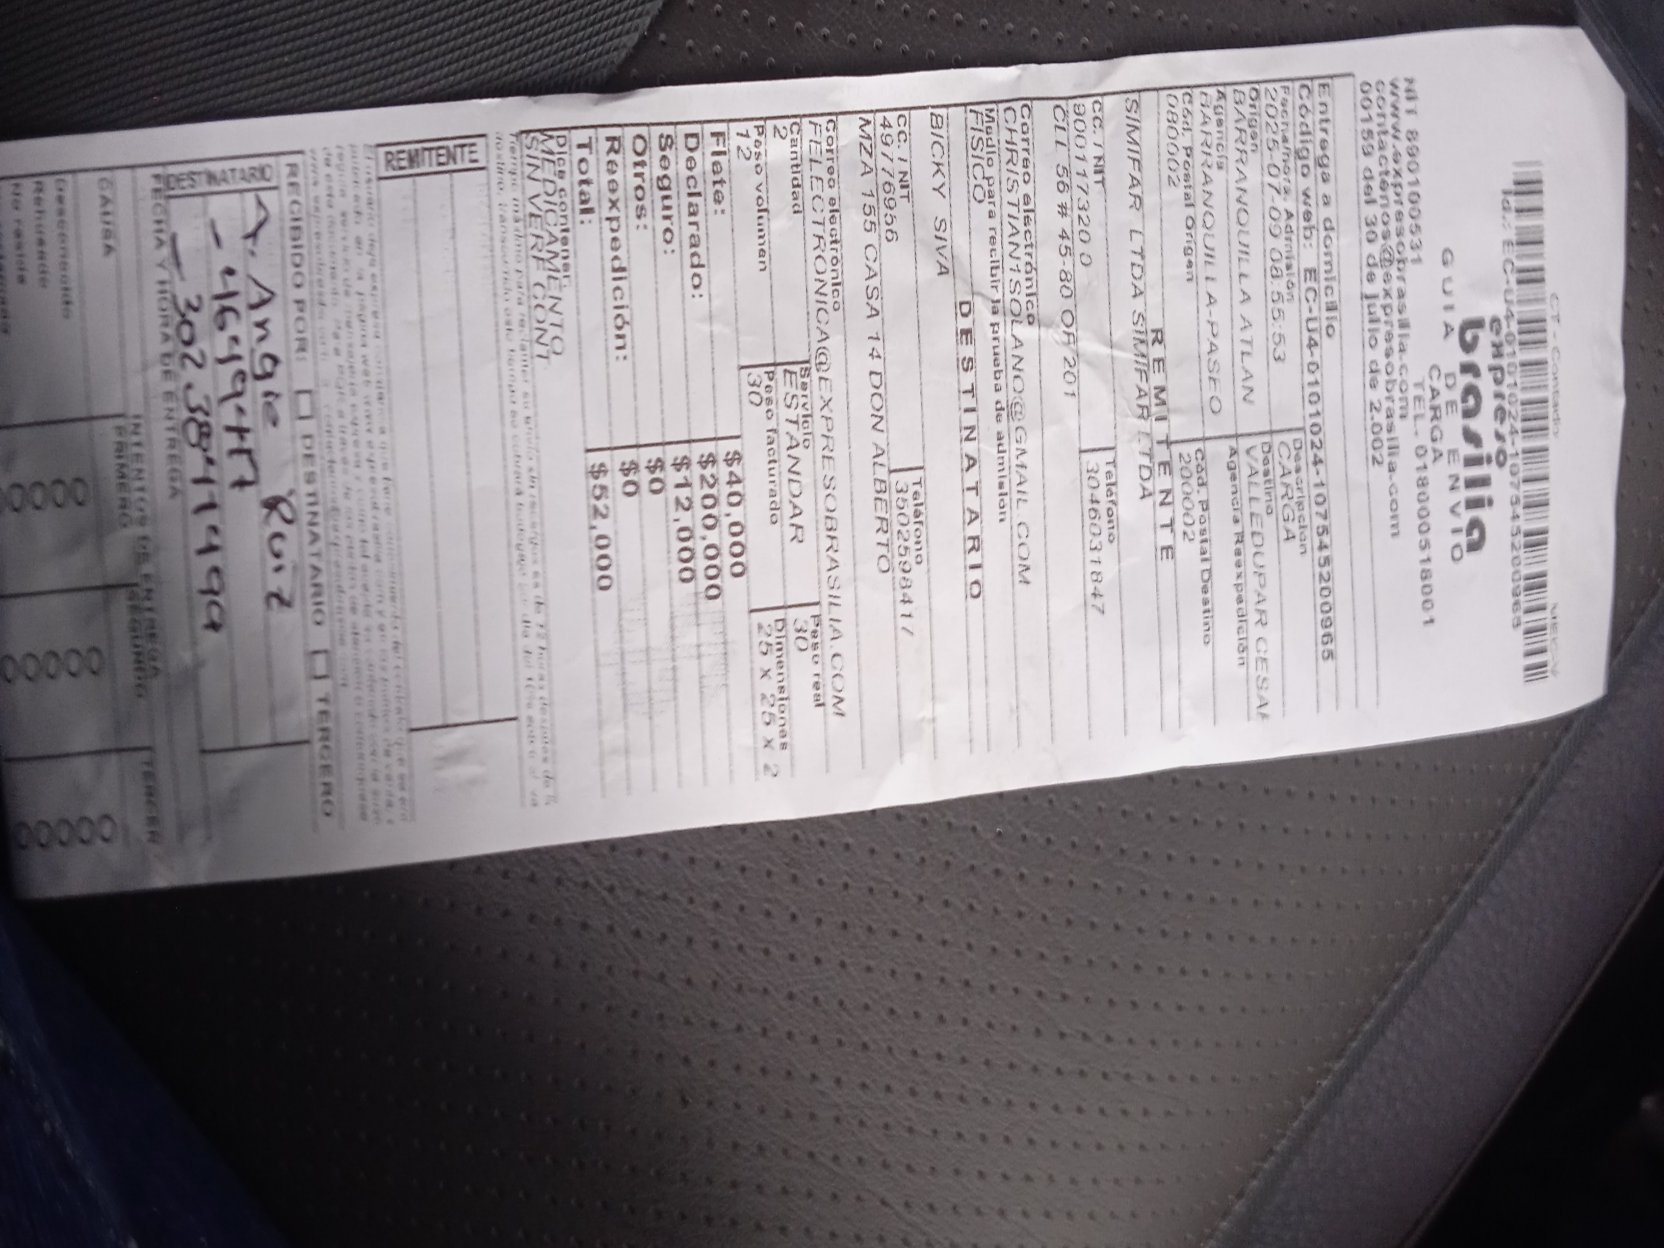 CT - Contado
Id.: EC-U4-0101024-107545200965
expreso
brasilia
GUIA DE ENVIO
CARGA
TEL. 018000518001
NIT 890100531
www.expresobrasilia.com
contactenos@expresobrasilia.com
00159 del 30 de julio de 2.002
Entrega a domicilio
Código web: EC-U4-0101024-107545200965
Fecha/hora Admisión Descripción
2025-07-09 08:55:53 CARGA
Origen Destino
BARRANQUILLA ATLAN VALLEDUPAR CESAR
Agencia Agencia Reexpedición
BARRANQUILLA-PASEO
Cód. Postal Origen Cód. Postal Destino
080002 200002
REMITENTE
SIMIFAR LTDA SIMIFAR LTDA
CC. / NIT Teléfono
9001173200 3046031847
CLL 56 # 45-80 OF 201
Correo electrónico
CHRISTIAN1SOLANO@GMAIL.COM
Medio para recibir la prueba de admisión
FISICO
DESTINATARIO
BICKY SIVA
CC. / NIT Teléfono
49776956 3502598417
MZA 155 CASA 14 DON ALBERTO
Correo electrónico
FELECTRONICA@EXPRESOBRASILIA.COM
Cantidad Servicio Peso real
2 ESTANDAR 30
Peso volumen Peso facturado Dimensiones
12 30 25 x 25 x 2
Flete: $40,000
Declarado: $200,000
Seguro: $12,000
Otros: $0
Reexpedición: $0
Total: $52,000
Dice contener:
MEDICAMENTO
SIN VERF CONT
REMITENTE
RECIBIDO POR: DESTINATARIO TERCERO
DESTINATARIO
Angie Ruiz
FECHA Y HORA DE ENTREGA
INTENTOS DE ENTREGA
CAUSA PRIMERO SEGUNDO TERCER
Desconocido
Rehusado
No reside